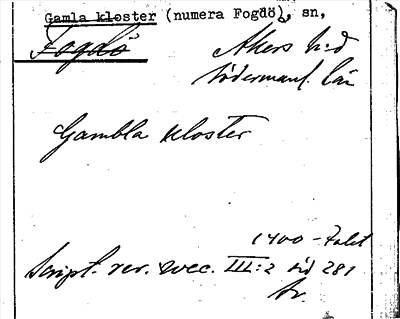 Gamla kloster (numera Fogdö), sn,
Fogdö Åkers h:d
Södermanl. län
Gambla kloster
1400-talet
Script. rer. svec. III:2 sid 281